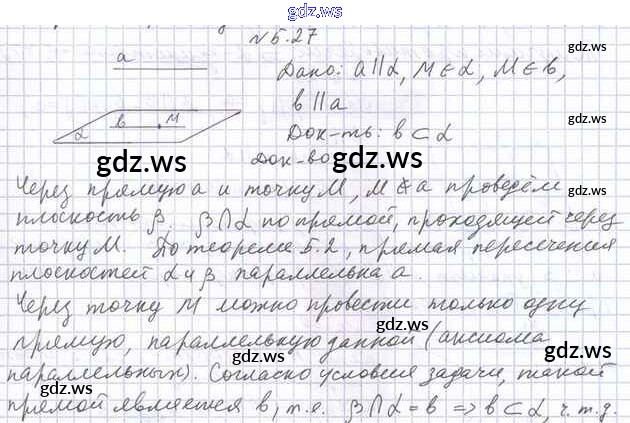 gdz.ws
№5.27
a
gdz.ws
Дано: a∥α, M∈α, M∈b,
b∥a
b M
α
gdz.ws
Док-ть: b⊂α
gdz.ws
Док-во
gdz.ws
Через прямую a и точку M, M∉a проведём
плоскость β. β∩α по прямой, проходящей через
точку M. По теореме 5.2, прямая пересечения
плоскостей α и β параллельна a.
Через точку M можно провести только одну
gdz.ws
прямую, параллельную данной (аксиома
gdz.ws
gdz.ws
параллельных). Согласно условия задачи, такой
прямой является b, т.е. β∩α=b => b⊂α, ч.т.д.
gdz.ws
gdz.ws